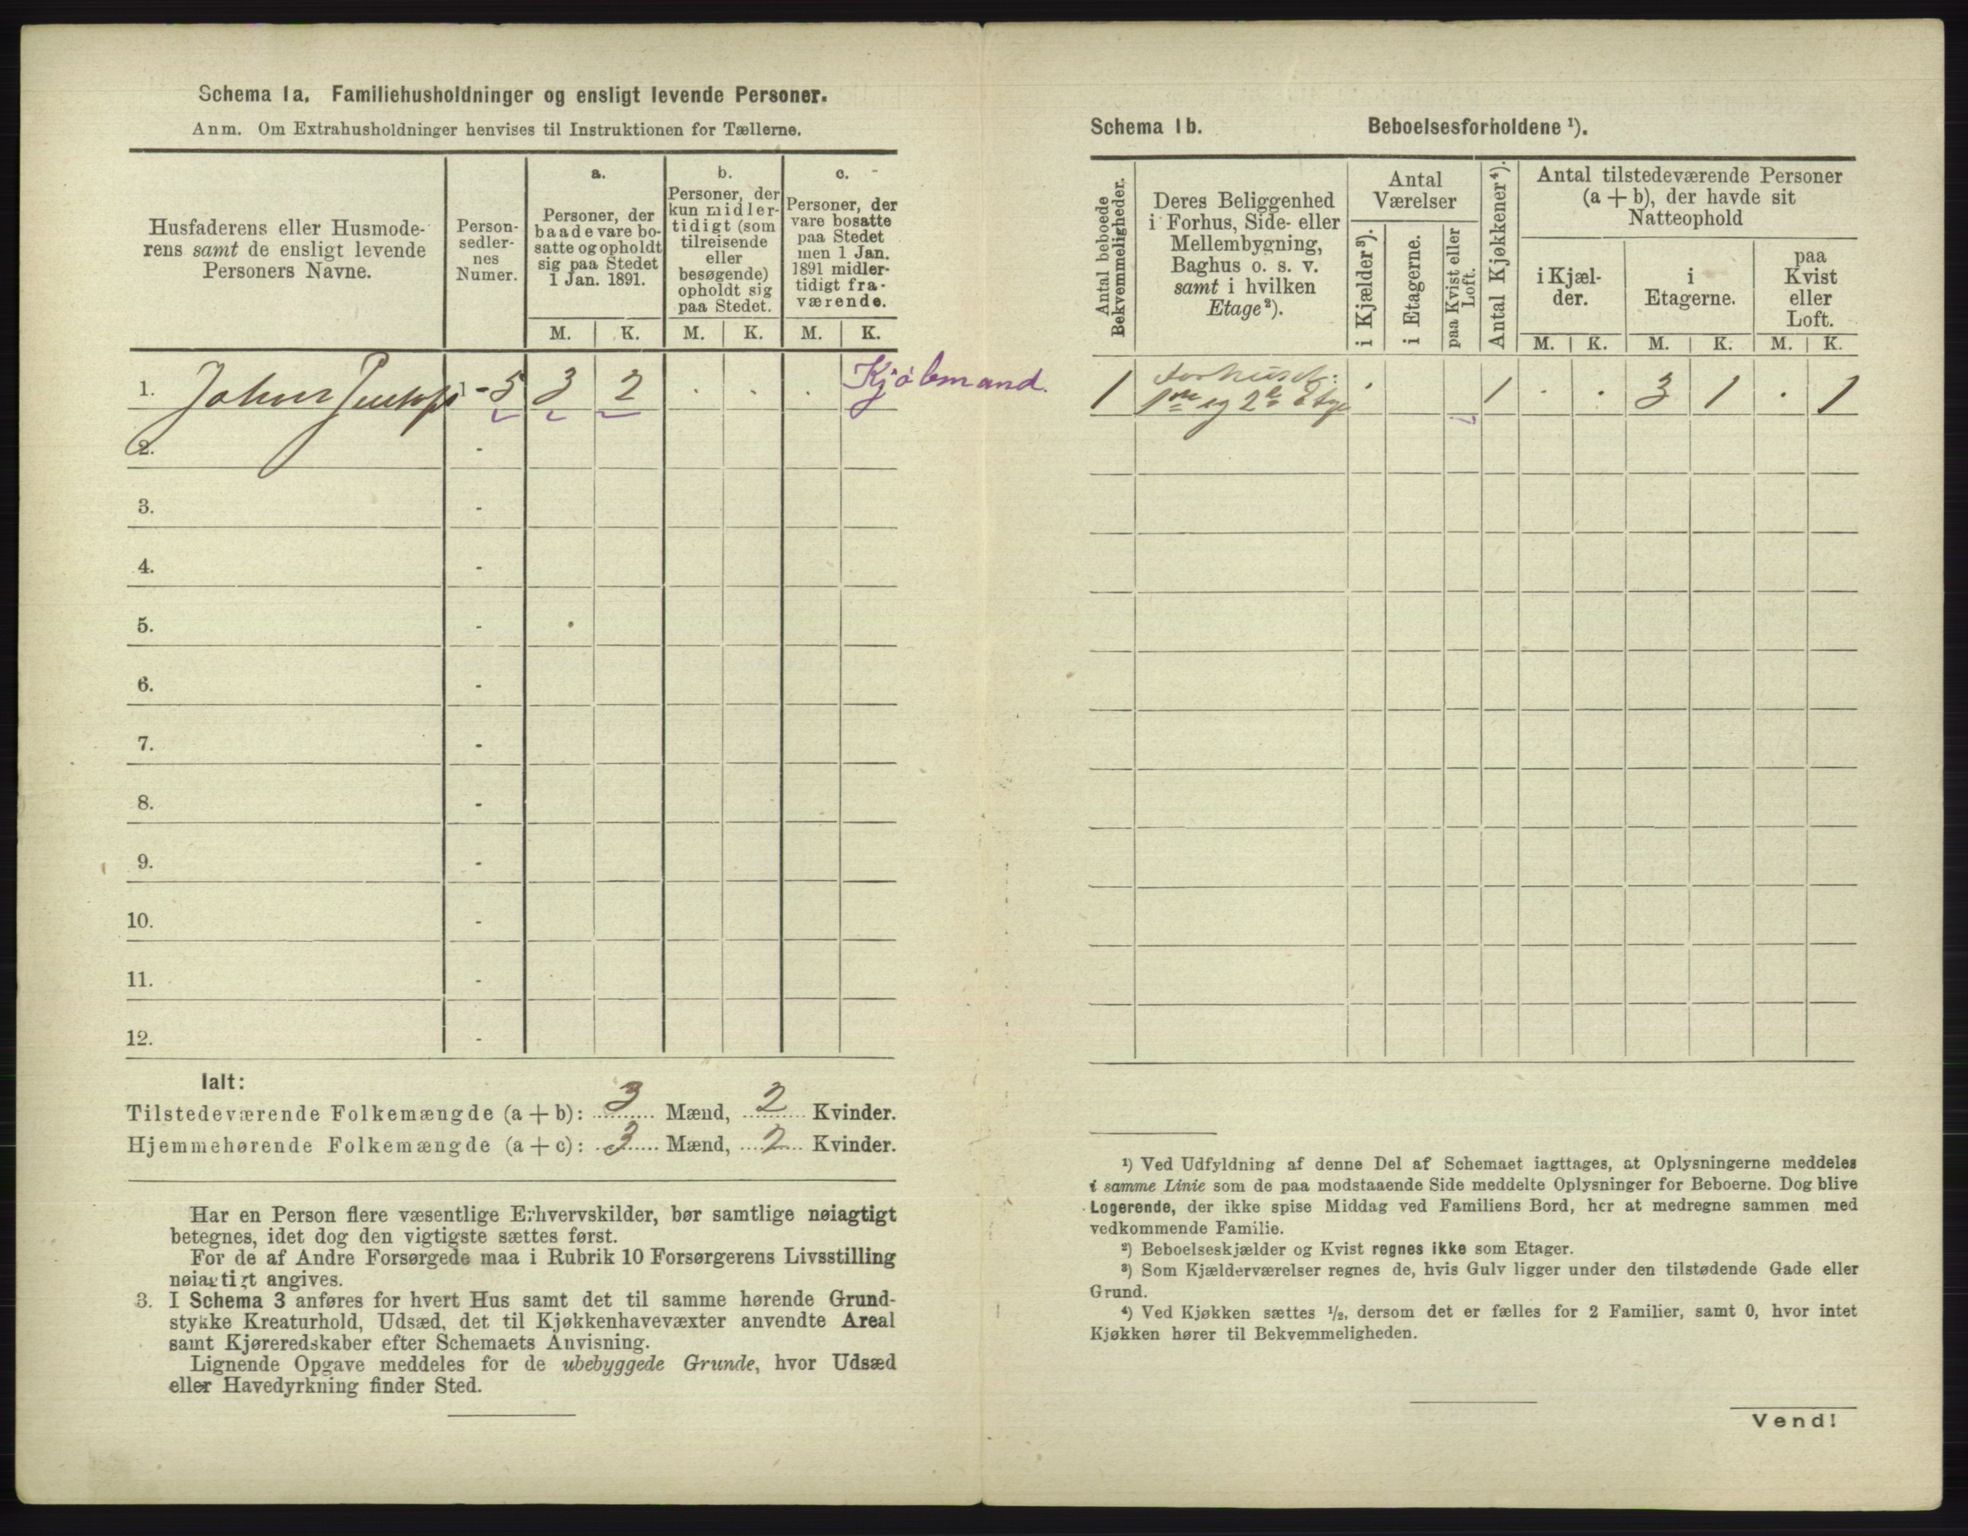 Schema 1a. Familiehusholdninger og ensligt levende Personer.
Anm. Om Extrahusholdninger henvises til Instruktionen for Tællerne.
Husfaderens eller Husmoderens samt de ensligt levende Personers Navne.
Personsedlernes Numer.
a.
Personer, der baade vare bosatte og opholdt sig paa Stedet 1 Jan. 1891.
b.
Personer, der kun midlertidigt (som tilreisende eller besøgende) opholdt sig paa Stedet.
c.
Personer, der vare bosatte paa Stedet men 1 Jan. 1891 midlertidigt fraværende.
M. K. M. K. M. K.
1. Johns 1 - 5 3 2 . . . Kjøbmand.
2. -
3. -
4. -
5. -
6. -
7. -
8. -
9. -
10. -
11. -
12. -
Ialt:
Tilstedeværende Folkemængde (a + b): 3 Mænd, 2 Kvinder.
Hjemmehørende Folkemængde (a + c): 3 Mænd, 2 Kvinder.
Har en Person flere væsentlige Erhvervskilder, bør samtlige nøiagtigt
betegnes, idet dog den vigtigste sættes først.
For de af Andre Forsørgede maa i Rubrik 10 Forsørgerens Livsstilling
nøiagtigt angives.
3. I Schema 3 anføres for hvert Hus samt det til samme hørende Grund-
stykke Kreaturhold, Udsæd, det til Kjøkkenhavevæxter anvendte Areal
samt Kjøreredskaber efter Schemaets Anvisning.
Lignende Opgave meddeles for de ubebyggede Grunde, hvor Udsæd
eller Havedyrkning finder Sted.
Schema 1b. Beboelsesforholdene ¹).
Antal beboede Bekvemmeligheder.
Deres Beliggenhed i Forhus, Side- eller Mellembygning, Baghus o. s. v. samt i hvilken Etage²).
Antal Værelser
i Kjælder³).
i Etagerne.
paa Kvist eller Loft.
Antal Kjøkkener⁴).
Antal tilstedeværende Personer (a + b), der havde sit Natteophold
i Kjælder.
i Etagerne.
paa Kvist eller Loft.
M. K. M. K. M. K.
1 Forhuset: . 1 . . 3 1 . 1
1ste og 2den Etage
¹) Ved Udfyldning af denne Del af Schemaet iagttages, at Oplysningerne meddeles
i samme Linie som de paa modstaaende Side meddelte Oplysninger for Beboerne. Dog blive
Logerende, der ikke spise Middag ved Familiens Bord, her at medregne sammen med
vedkommende Familie.
²) Beboelseskjælder og Kvist regnes ikke som Etager.
³) Som Kjælderværelser regnes de, hvis Gulv ligger under den tilstødende Gade eller
Grund.
⁴) Ved Kjøkken sættes ½, dersom det er fælles for 2 Familier, samt 0, hvor intet
Kjøkken hører til Bekvemmeligheden.
Vend!